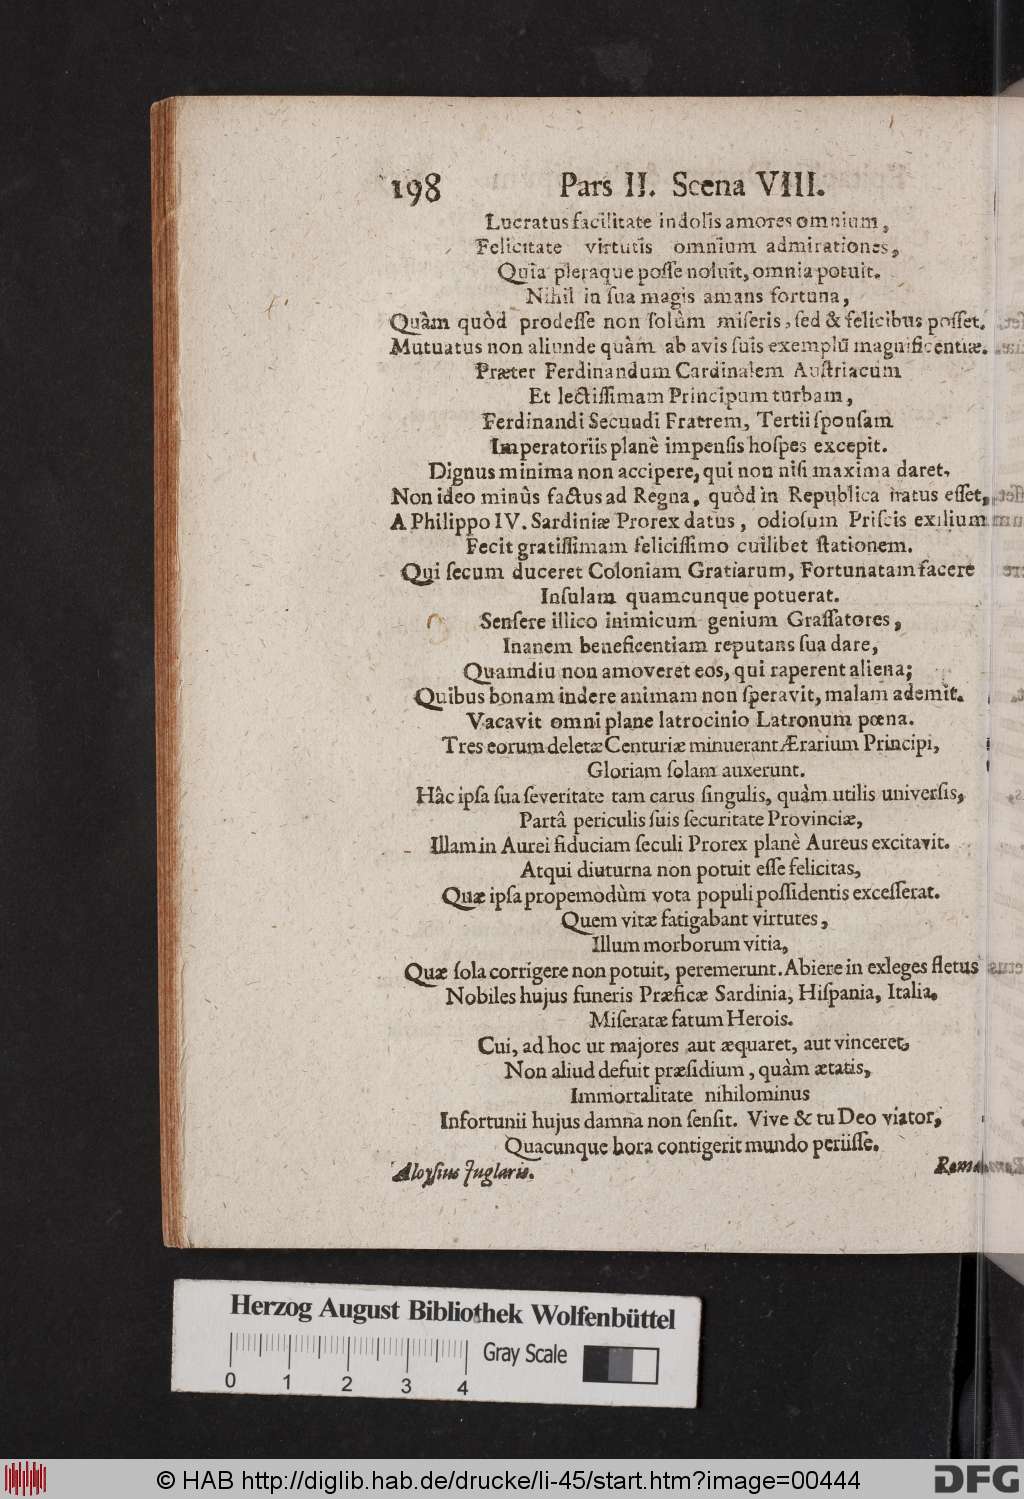 198 Pars II. Scena VIII.
Lucratus facilitate indolis amores omnium,
Felicitate virtutis omnium admirationes,
Quia pleraque posse noluit, omnia potuit.
Nihil in sua magis amans fortuna,
Quàm quòd prodesse non solùm miseris, sed & felicibus posset.
Mutuatus non aliunde quàm ab avis suis exemplū magnificentiæ.
Præter Ferdinandum Cardinalem Austriacum
Et lectissimam Principum turbam,
Ferdinandi Secundi Fratrem, Tertii sponsam
Imperatoriis planè impensis hospes excepit.
Dignus minima non accipere, qui non nisi maxima daret.
Non ideo minùs factus ad Regna, quòd in Republica natus esset,
A Philippo IV. Sardiniæ Prorex datus, odiosum Priscis exilium
Fecit gratissimam felicissimo cuilibet stationem.
Qui secum duceret Coloniam Gratiarum, Fortunatam facere
Insulam quamcunque potuerat.
Sensere illico inimicum genium Grassatores,
Inanem beneficentiam reputans sua dare,
Quamdiu non amoveret eos, qui raperent aliena;
Quibus bonam indere animam non speravit, malam ademit.
Vacavit omni plane latrocinio Latronum pœna.
Tres eorum deletæ Centuriæ minuerant Ærarium Principi,
Gloriam solam auxerunt.
Hâc ipsa sua severitate tam carus singulis, quàm utilis universis,
Partâ periculis suis securitate Provinciæ,
Illam in Aurei fiduciam seculi Prorex planè Aureus excitavit.
Atqui diuturna non potuit esse felicitas,
Quæ ipsa propemodùm vota populi possidentis excesserat.
Quem vitæ fatigabant virtutes,
Illum morborum vitia,
Quæ sola corrigere non potuit, peremerunt. Abiere in exleges fletus
Nobiles hujus funeris Præficæ Sardinia, Hispania, Italia,
Miseratæ fatum Herois.
Cui, ad hoc ut majores aut æquaret, aut vinceret,
Non aliud defuit præsidium, quàm ætatis,
Immortalitate nihilominus
Infortunii hujus damna non sensit. Vive & tu Deo viator,
Quacunque hora contigerit mundo periisse.
Aloysius Juglaris.
Herzog August Bibliothek Wolfenbüttel
Gray Scale
0 1 2 3 4
© HAB http://diglib.hab.de/drucke/li-45/start.htm?image=00444
DFG